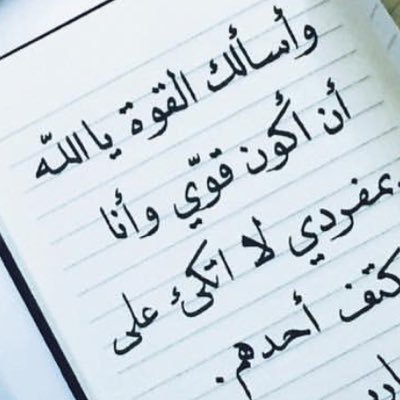 وأسألك القوة يا الله
أن أكون قويّ وأنا
بمفردي لا اتكئ على
كتف أحدهم.